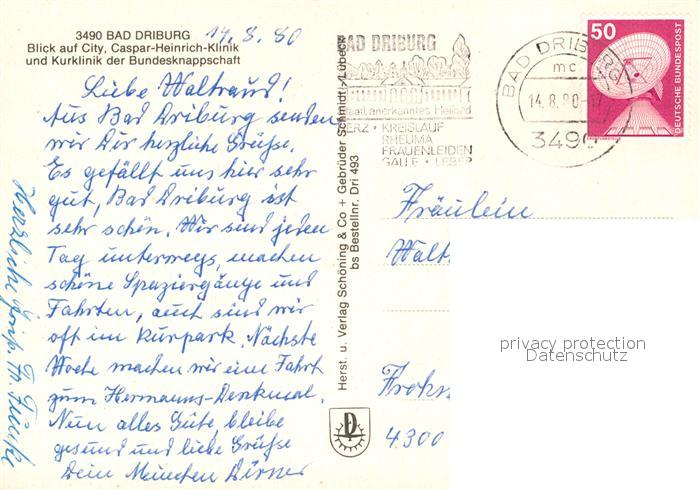 3490 BAD DRIBURG
Blick auf City, Caspar-Heinrich-Klinik
und Kurklinik der Bundesknappschaft
14.8.80
Liebe Waltraud!
Aus Bad Driburg senden
wir Dir herzliche Grüße.
Es gefällt uns hier sehr
gut, Bad Driburg ist
sehr schön. Wir sind jeden
Tag unterwegs, machen
schöne Spaziergänge und
Fahrten, auch sind wir
oft im Kurpark. Nächste
Woche machen wir eine Fahrt
zum Hermanns-Denkmal.
Nun alles Gute, bleibe
gesund und liebe Grüße
Dein
Herzliche Grüße
Herst. u. Verlag Schöning & Co + Gebrüder Schmidt, Lübeck
bs Bestellnr. Dri 493
BAD DRIBURG
Staatl. anerkanntes Heilbad
HERZ • KREISLAUF
RHEUMA
FRAUENLEIDEN
GALLE • LEBER
BAD DRIBURG
mc
14.8.80-17
3490
50
DEUTSCHE BUNDESPOST
Fräulein
Walt
privacy protection
Datenschutz
Frohn
4300